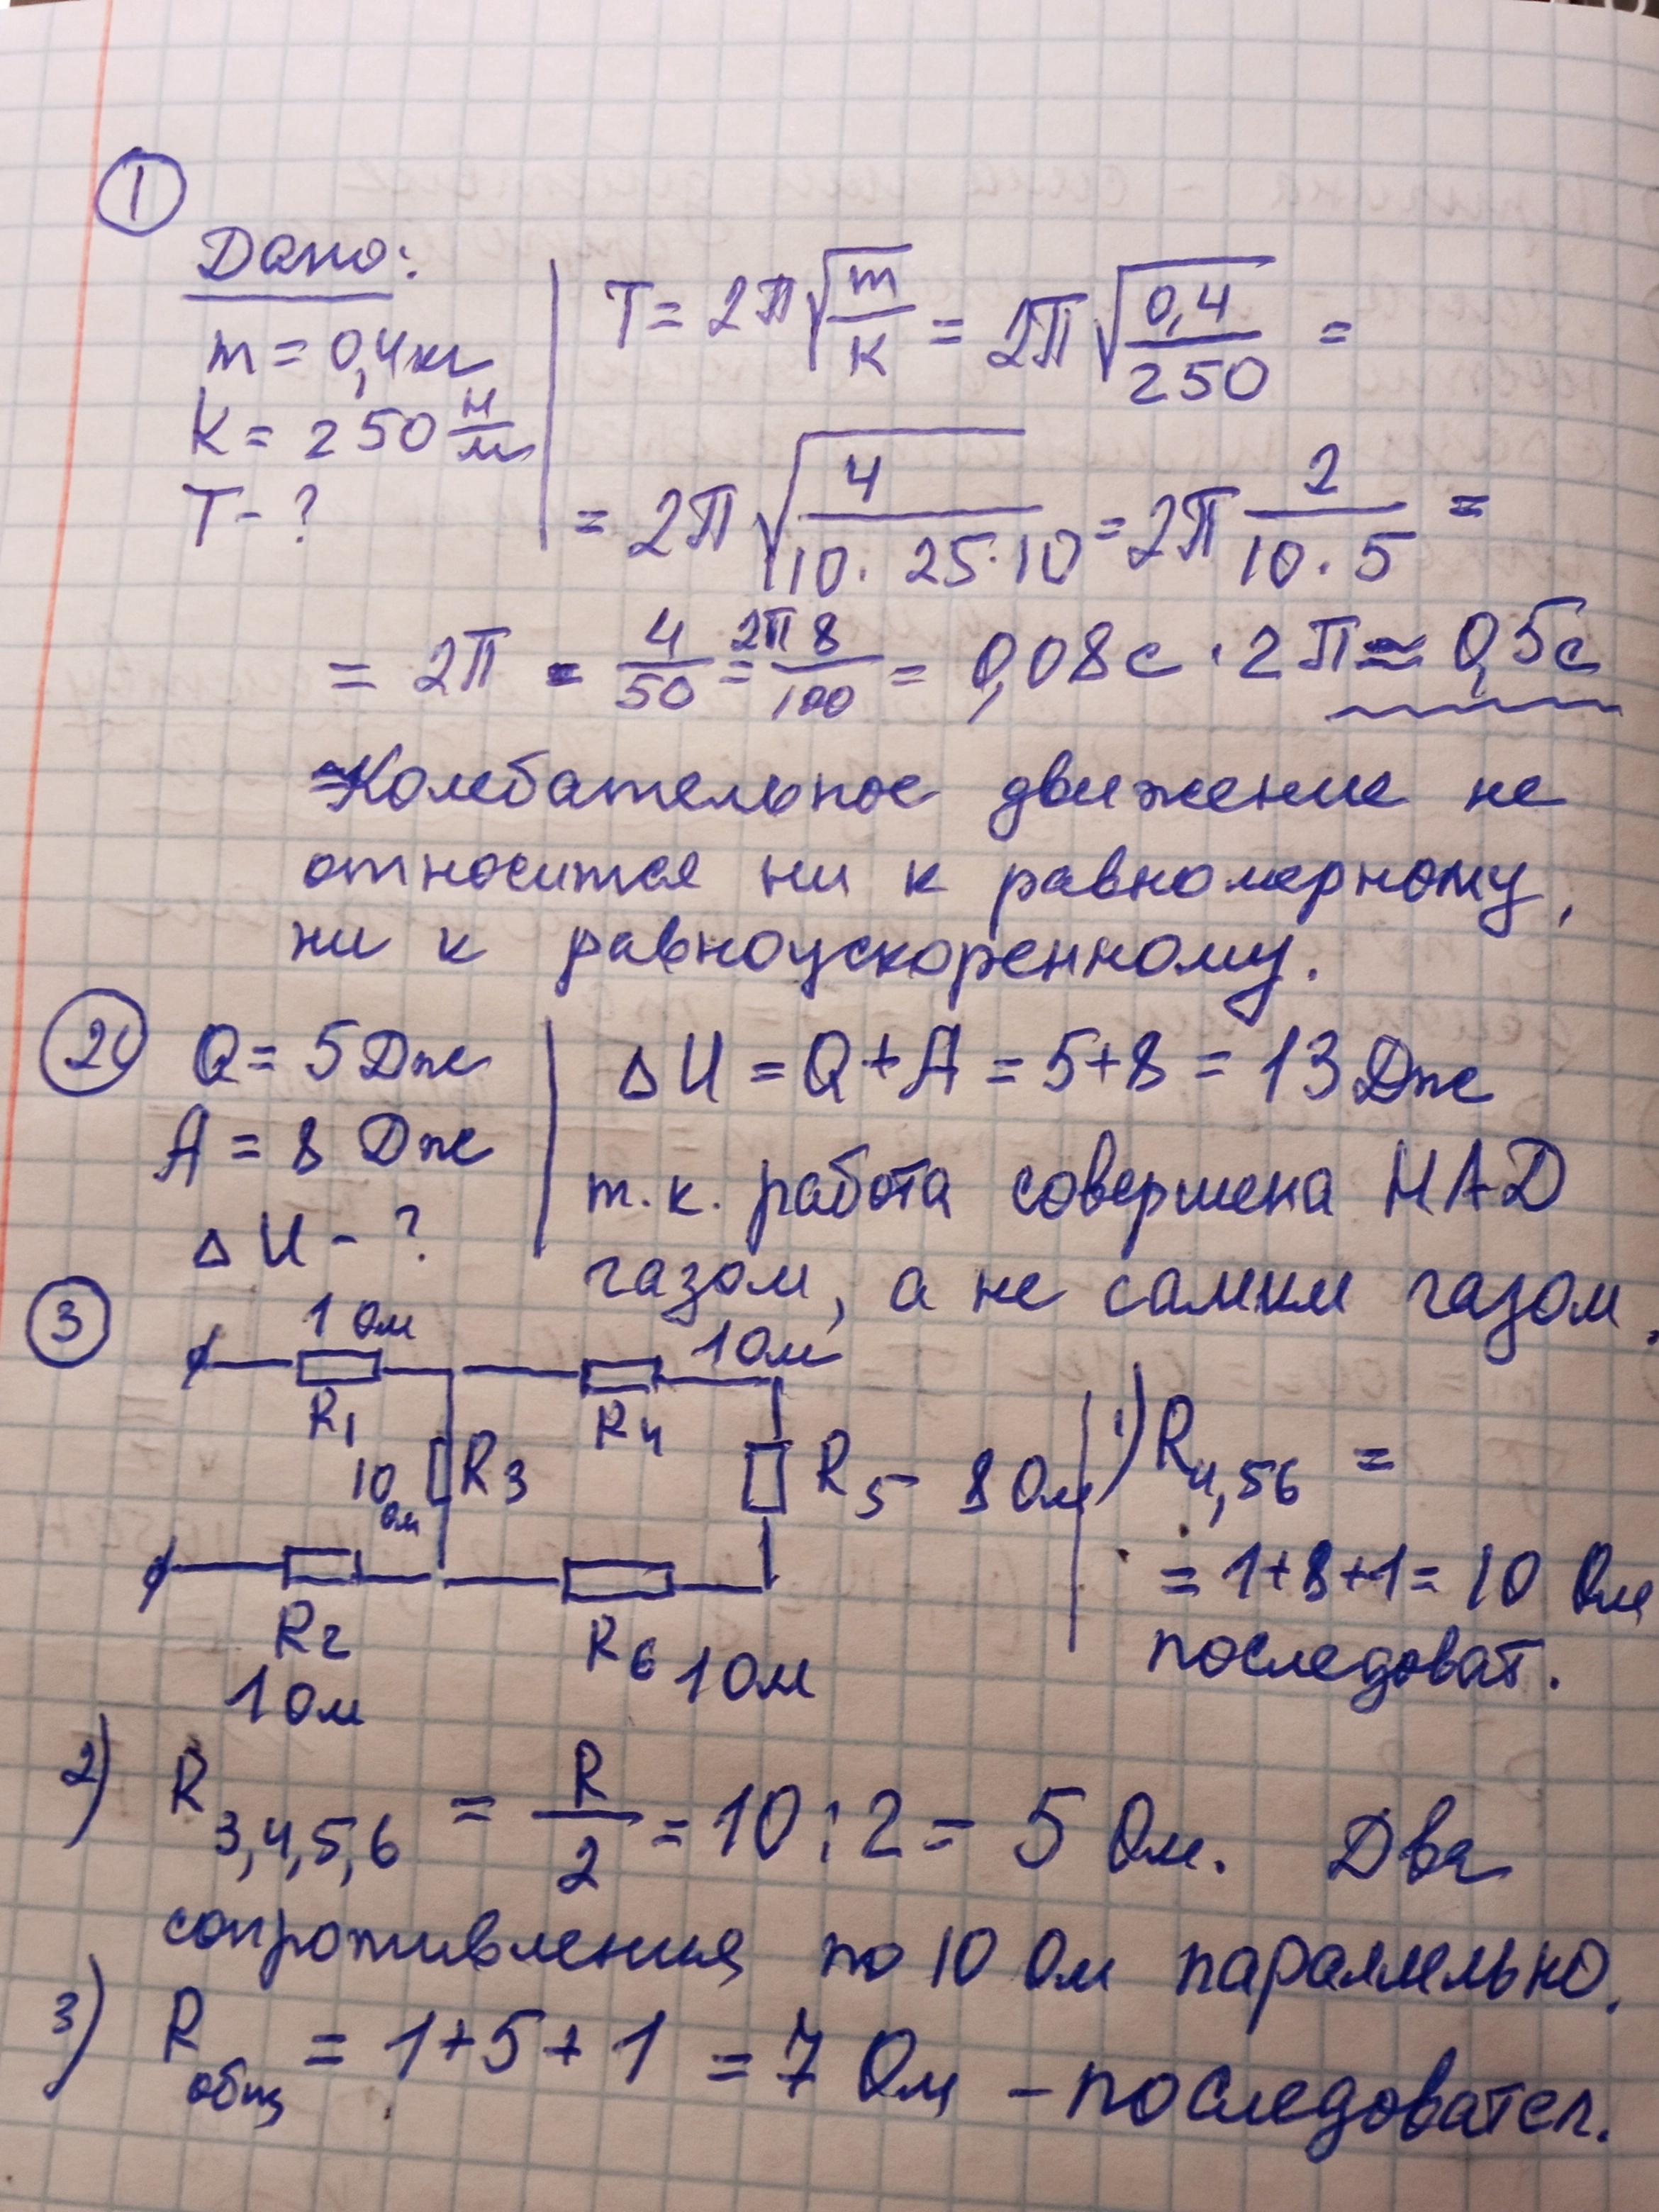 1
Дано:
m = 0,4 кг
k = 250 н/м
T - ?
T = 2π√(m/k) = 2π√(0,4/250) =
= 2π√(4/(10·25·10)) = 2π 2/(10·5) =
= 2π = 4/50 = 2π 8/100 = 0,08 с · 2π ≈ 0,5 с
Колебательное движение не
относится ни к равномерному,
ни к равноускоренному.
2
Q = 5 Дж
A = 8 Дж
ΔU - ?
ΔU = Q + A = 5 + 8 = 13 Дж
т.к. работа совершена НАД
газом, а не самим газом.
3
1 Ом
R1
1 Ом
R4
10 Ом
R3
R5 - 8 Ом
R2
1 Ом
R6 1 Ом
1) R4,56 =
= 1+8+1 = 10 Ом
последоват.
2) R3,4,5,6 = R/2 = 10 : 2 = 5 Ом. Два
сопротивления по 10 Ом параллельно.
3) Rобщ = 1 + 5 + 1 = 7 Ом - последовател.